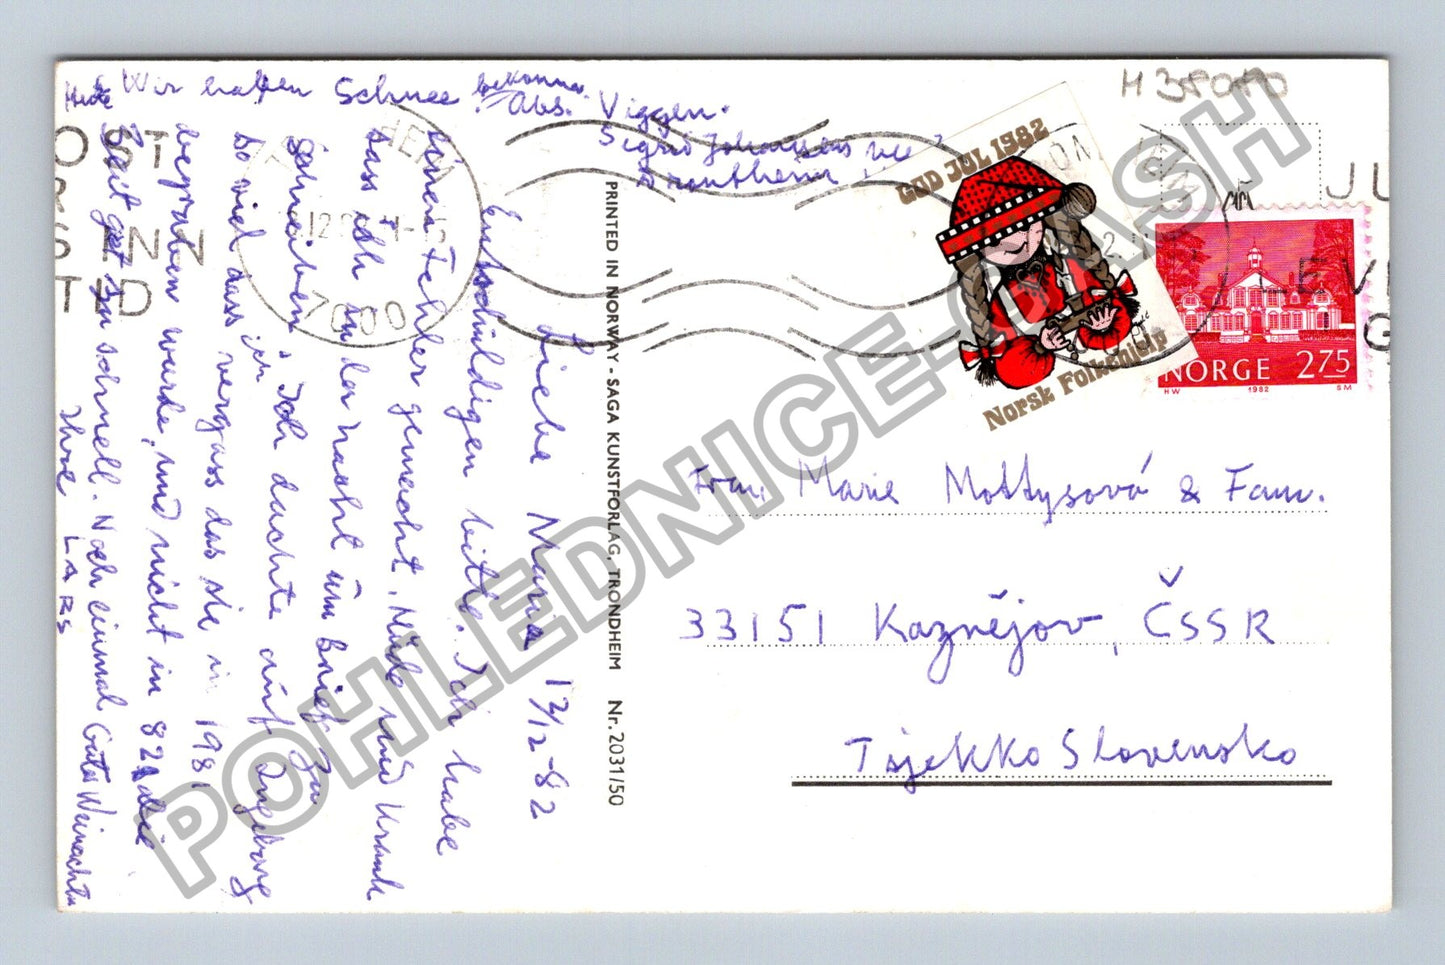 Heute Wir haben Schnee bekommen.
Abs. Viggen.
Sigrid Johansens vei
Trondheim
Liebe Mana 13/12-82
Entschuldigen bitte. Ich habe
einen Fehler gemacht. Müde und Krank
dass ich in der Nacht um brief zu
schreiben. Ich dachte auf Ingeborg
so viel dass ich vergass das sie in 1981
begraben wurde, und nicht in 82. Die
Zeit get zu schnell. Noch einmal Gute Weinachten
Ihre LARS
PRINTED IN NORWAY - SAGA KUNSTFORLAG, TRONDHEIM Nr. 2031/50
GOD JUL 1982
Norsk Folkehjelp
NORGE 275
HW 1982 SM
7000
Frau, Marie Mottysová & Fam.
33151 Kaznějov, ČSSR
Tsjekko Slovensko
POHLEDNICE-CASH